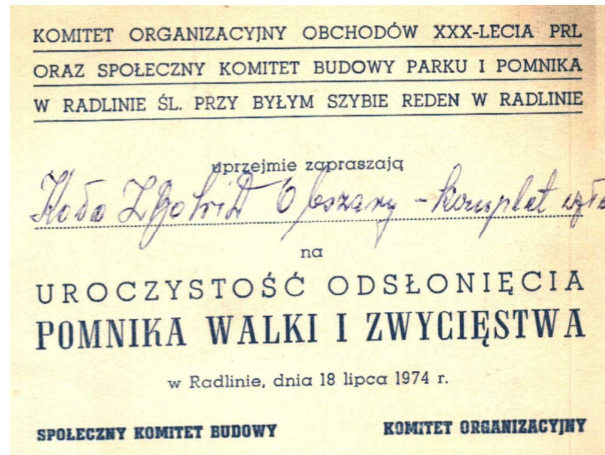 KOMITET ORGANIZACYJNY OBCHODÓW XXX-LECIA PRL
ORAZ SPOŁECZNY KOMITET BUDOWY PARKU I POMNIKA
W RADLINIE ŚL. PRZY BYŁYM SZYBIE REDEN W RADLINIE
uprzejmie zapraszają
Koło ZBoWiD Obszary - komplet
na
UROCZYSTOŚĆ ODSŁONIĘCIA
POMNIKA WALKI I ZWYCIĘSTWA
w Radlinie, dnia 18 lipca 1974 r.
SPOŁECZNY KOMITET BUDOWY KOMITET ORGANIZACYJNY